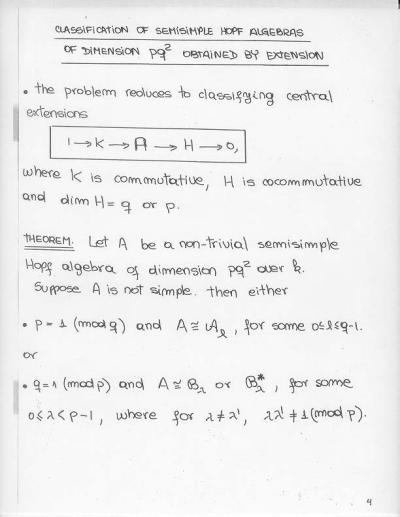 CLASSIFICATION OF SEMISIMPLE HOPF ALGEBRAS
OF DIMENSION pq² OBTAINED BY EXTENSION
• the problem reduces to classifying central
extensions
1 → K → A → H → 0,
where K is commutative, H is cocommutative
and dim H = q or p.
THEOREM. Let A be a non-trivial semisimple
Hopf algebra of dimension pq² over k.
Suppose A is not simple. then either
• p = 1 (mod q) and A ≅ 𝒜ₗ, for some 0≤l≤q-1.
or
• q = 1 (mod p) and A ≅ B_λ or B_λ^*, for some
0≤λ<p-1, where for λ≠λ', λλ'≠1(mod p).
4